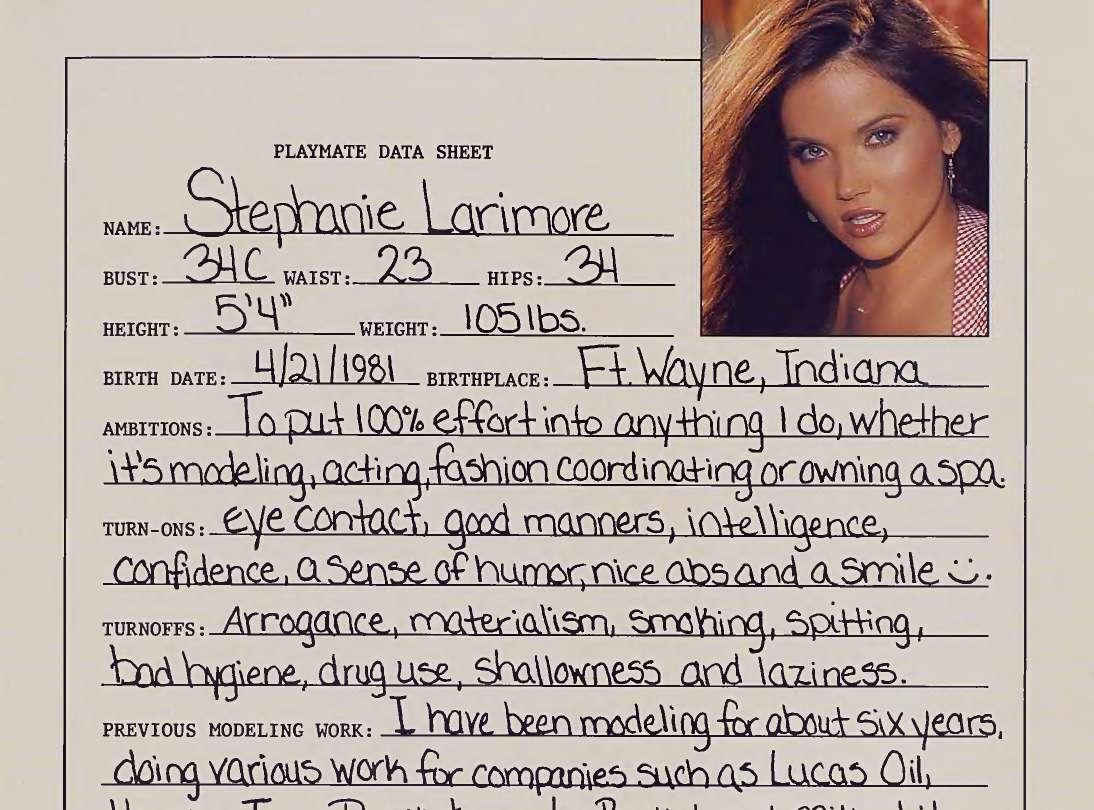 PLAYMATE DATA SHEET
NAME: Stephanie Larimore
BUST: 34C WAIST: 23 HIPS: 34
HEIGHT: 5'4" WEIGHT: 105 lbs.
BIRTH DATE: 4/21/1981 BIRTHPLACE: Ft. Wayne, Indiana
AMBITIONS: To put 100% effort into anything I do, whether
it's modeling, acting, fashion coordinating or owning a spa.
TURN-ONS: eye contact, good manners, intelligence,
confidence, a sense of humor, nice abs and a smile ⍨.
TURNOFFS: Arrogance, materialism, smoking, spitting,
bad hygiene, drug use, shallowness and laziness.
PREVIOUS MODELING WORK: I have been modeling for about six years,
doing various work for companies such as Lucas Oil,